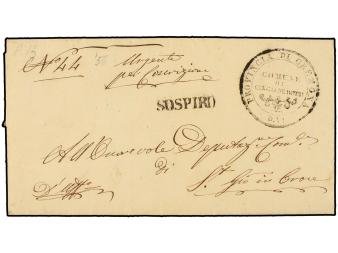 N.° 44
Urgente
per Coscrizione
SOSPIRO
PROVINCIA DI CREMONA
COMUNE
DI
All'Onorevole Deputaz.e Com.le
di
D'uffo
S.t Gio in Croce